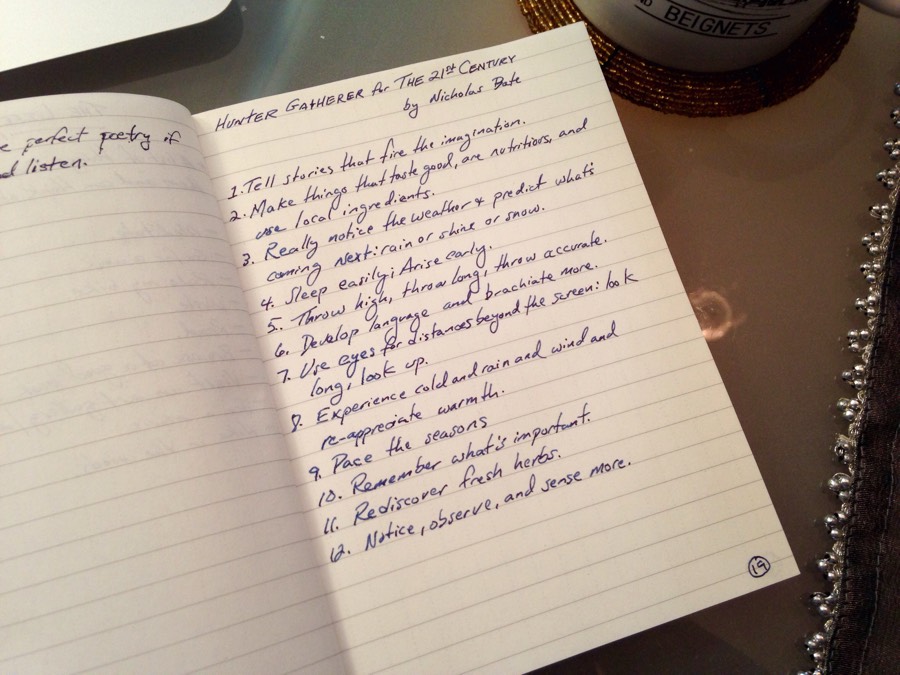 e perfect poetry if
listen.
HUNTER GATHERER for THE 21ST CENTURY
by Nicholas Bate
1. Tell stories that fire the imagination.
2. Make things that taste good, are nutritious, and
use local ingredients.
3. Really notice the weather & predict what's
coming next: rain or shine or snow.
4. Sleep easily; Arise early.
5. Throw high, throw long, throw accurate.
6. Develop language and brachiate more.
7. Use eyes for distances beyond the screen: look
long, look up.
8. Experience cold and rain and wind and
re-appreciate warmth.
9. Pace the seasons
10. Remember what's important.
11. Rediscover fresh herbs.
12. Notice, observe, and sense more.
19
BEIGNETS